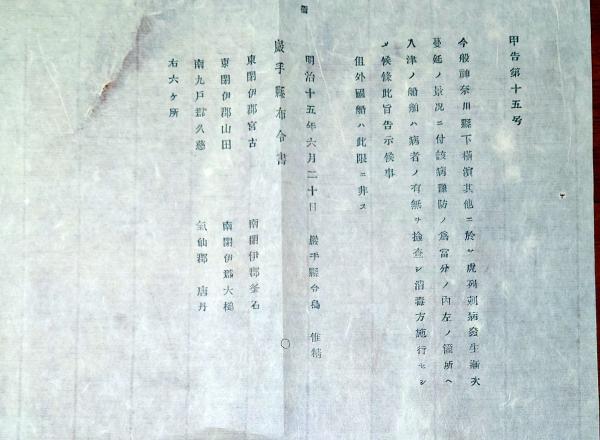 甲告第十五号
今般神奈川縣下横濱其他ニ於テ虎列剌病發生漸次
蔓延ノ景况ニ付該病豫防ノ爲當分ノ內左ノ箇所ヘ
入津ノ船舶ハ病者ノ有無ヲ撿查シ消毒方施行セシ
メ候條此旨告示候事
但外國船ハ此限ニ非ス
明治十五年六月二十日 巖手縣令島 惟精
巖手縣布令書
東閉伊郡宮古 南閉伊郡釜石
東閉伊郡山田 南閉伊郡大槌
南九戶郡久慈 氣仙郡 唐丹
右六ケ所